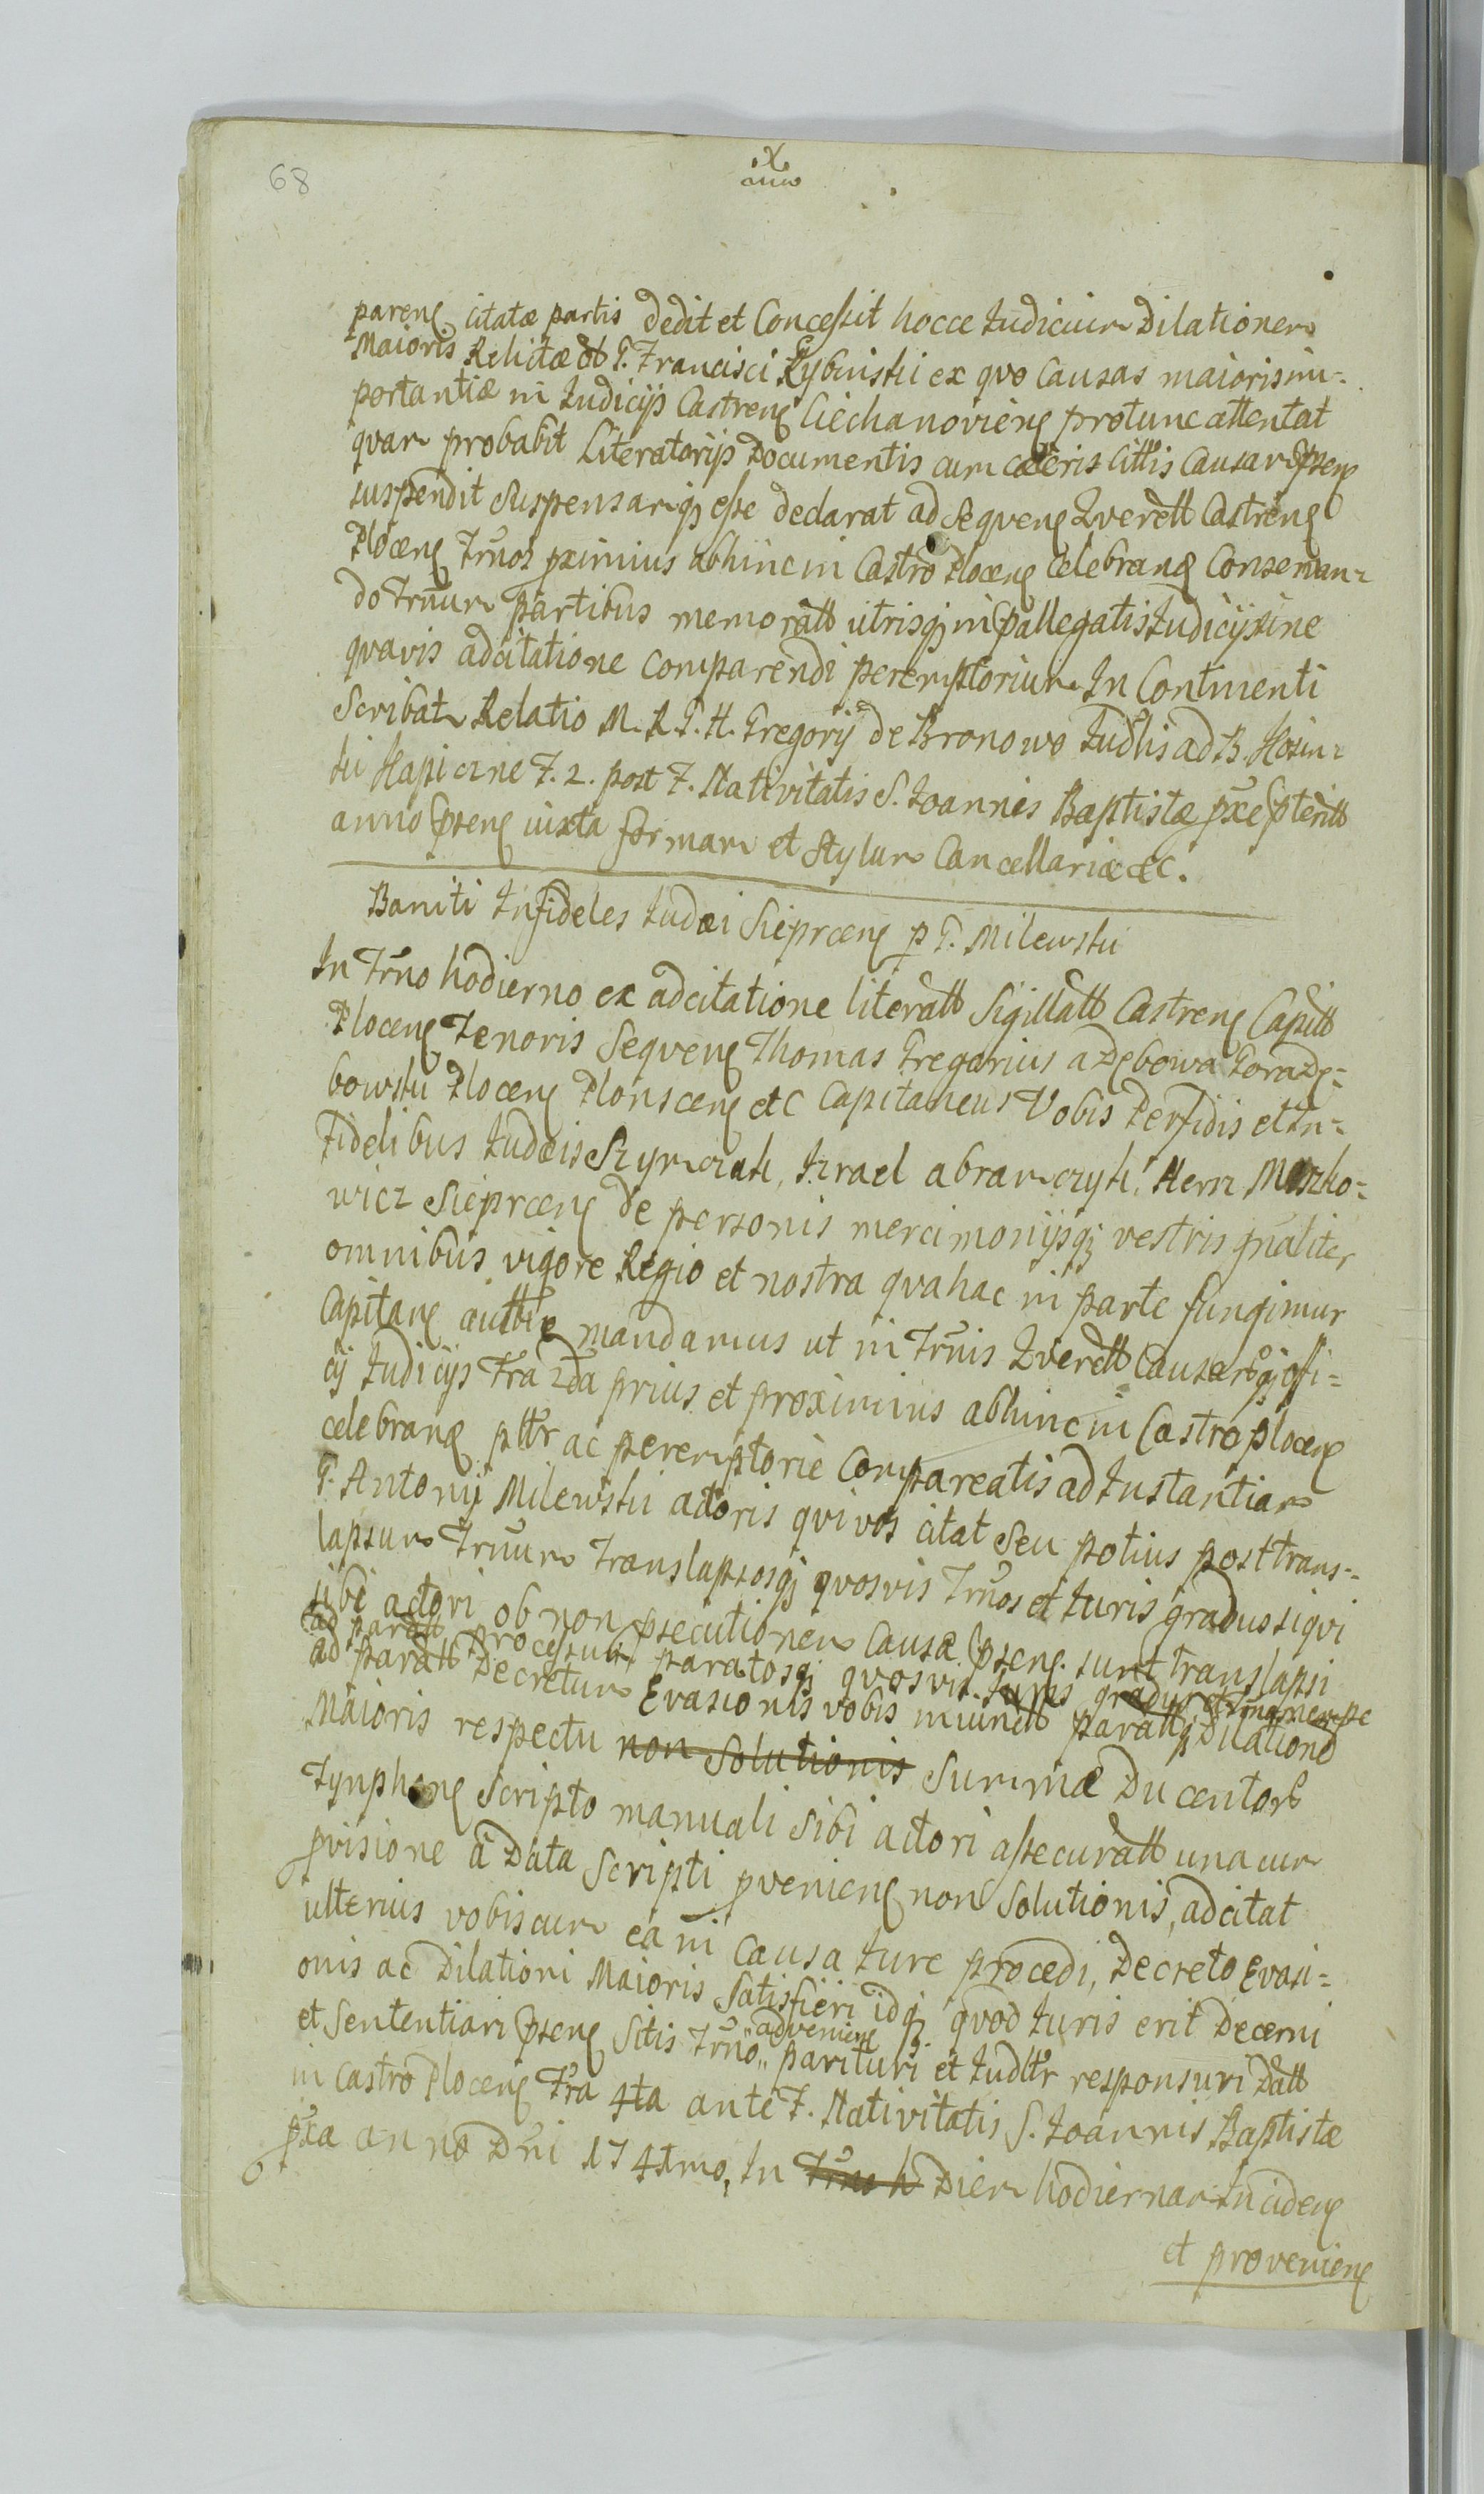 68
pareng citatæ partis dedit et Concessit hocce Iudicium Dilationem
Maioris Relictæ ob G. Francisci Rybinski ex quo Causas maioris im=
portantiæ in Iudicijs Castreng Ciechanovieng protunc attentat
quam probabit Literatorijs Documentis cum cæteris Causam pseng
suspendit suspensamq esse declarat ad Sequeng Querell Castreng
Ploceng Trnos pximius abhinc in Castro Ploceng Celebrang Conservan=
do Trnum Partibus memoratt utrisq in pallegatis Iudicijs sine
quavis adcitatione comparendi peremptorium In Continenti
Scribat Relatio M. R. G. H. Gregorij de Bronowo Iudlis ad B.
anno pseng iuxta formam et Stylum Cancellariæ &c.
Baniti Infideles Iudæi Sieprceng p G. Milewski
In Trno hodierno ex adcitatione literatt Sigillatt Castreng Capitt
Ploceng Tenoris Sequeng Thomas Gregorius a Dębowa Gora Dę=
bowski Ploceng Plonsceng etc Capitaneus Vobis Perfidis et In=
fidelibus Iudæis Szymczak, Izrael abramczyk, Hersz Moszko=
wicz Sieprceng de personis mercimonijsq vestris gnaliter
omnibus vigore Regio et nostra qua hac in parte fungimur
Capitang authte mandamus ut in Trnis Querell Causarq offi=
cij Iudicijs Fra 2da prius et proximius abhinc in Castro Ploceng
celebrang pttr ac peremptorie Compareatis ad Instantiam
G. Antonij Milewski actoris qui vos citat seu potius post trans=
lapsum Trnum Translapsosq quosvis Trnos et Iuris gradus siqui
sibi actori ob non psecutionem Causæ pseng sunt translapsi
ad paratt processum paratosq quosvis Iuris gradus et
ad paratt Decretum Evasionis vobis iniunctt paratt Dilatione
Maioris respectu non Solutionis Summæ Ducentor
Tynpheng Scripto manuali sibi actori assecuratt una cum
pvisione a Data Scripti pvenieng non Solutionis, adcitat
ulterius vobiscum ea in Causa Iure procedi, Decreto Evasi=
onis ac Dilationi Maioris Satisfieri idq quod Iuris erit Decerni
advenieng
et Sententiari pseng Sitis Trno parituri et Iudltr responsuri Datt
in Castro Ploceng Fra 4ta ante F. Nativitatis S. Ioannis Baptistæ
pxa anno Dni 1741mo, In Trno h Diem hodiernam Incideng
et provenieng